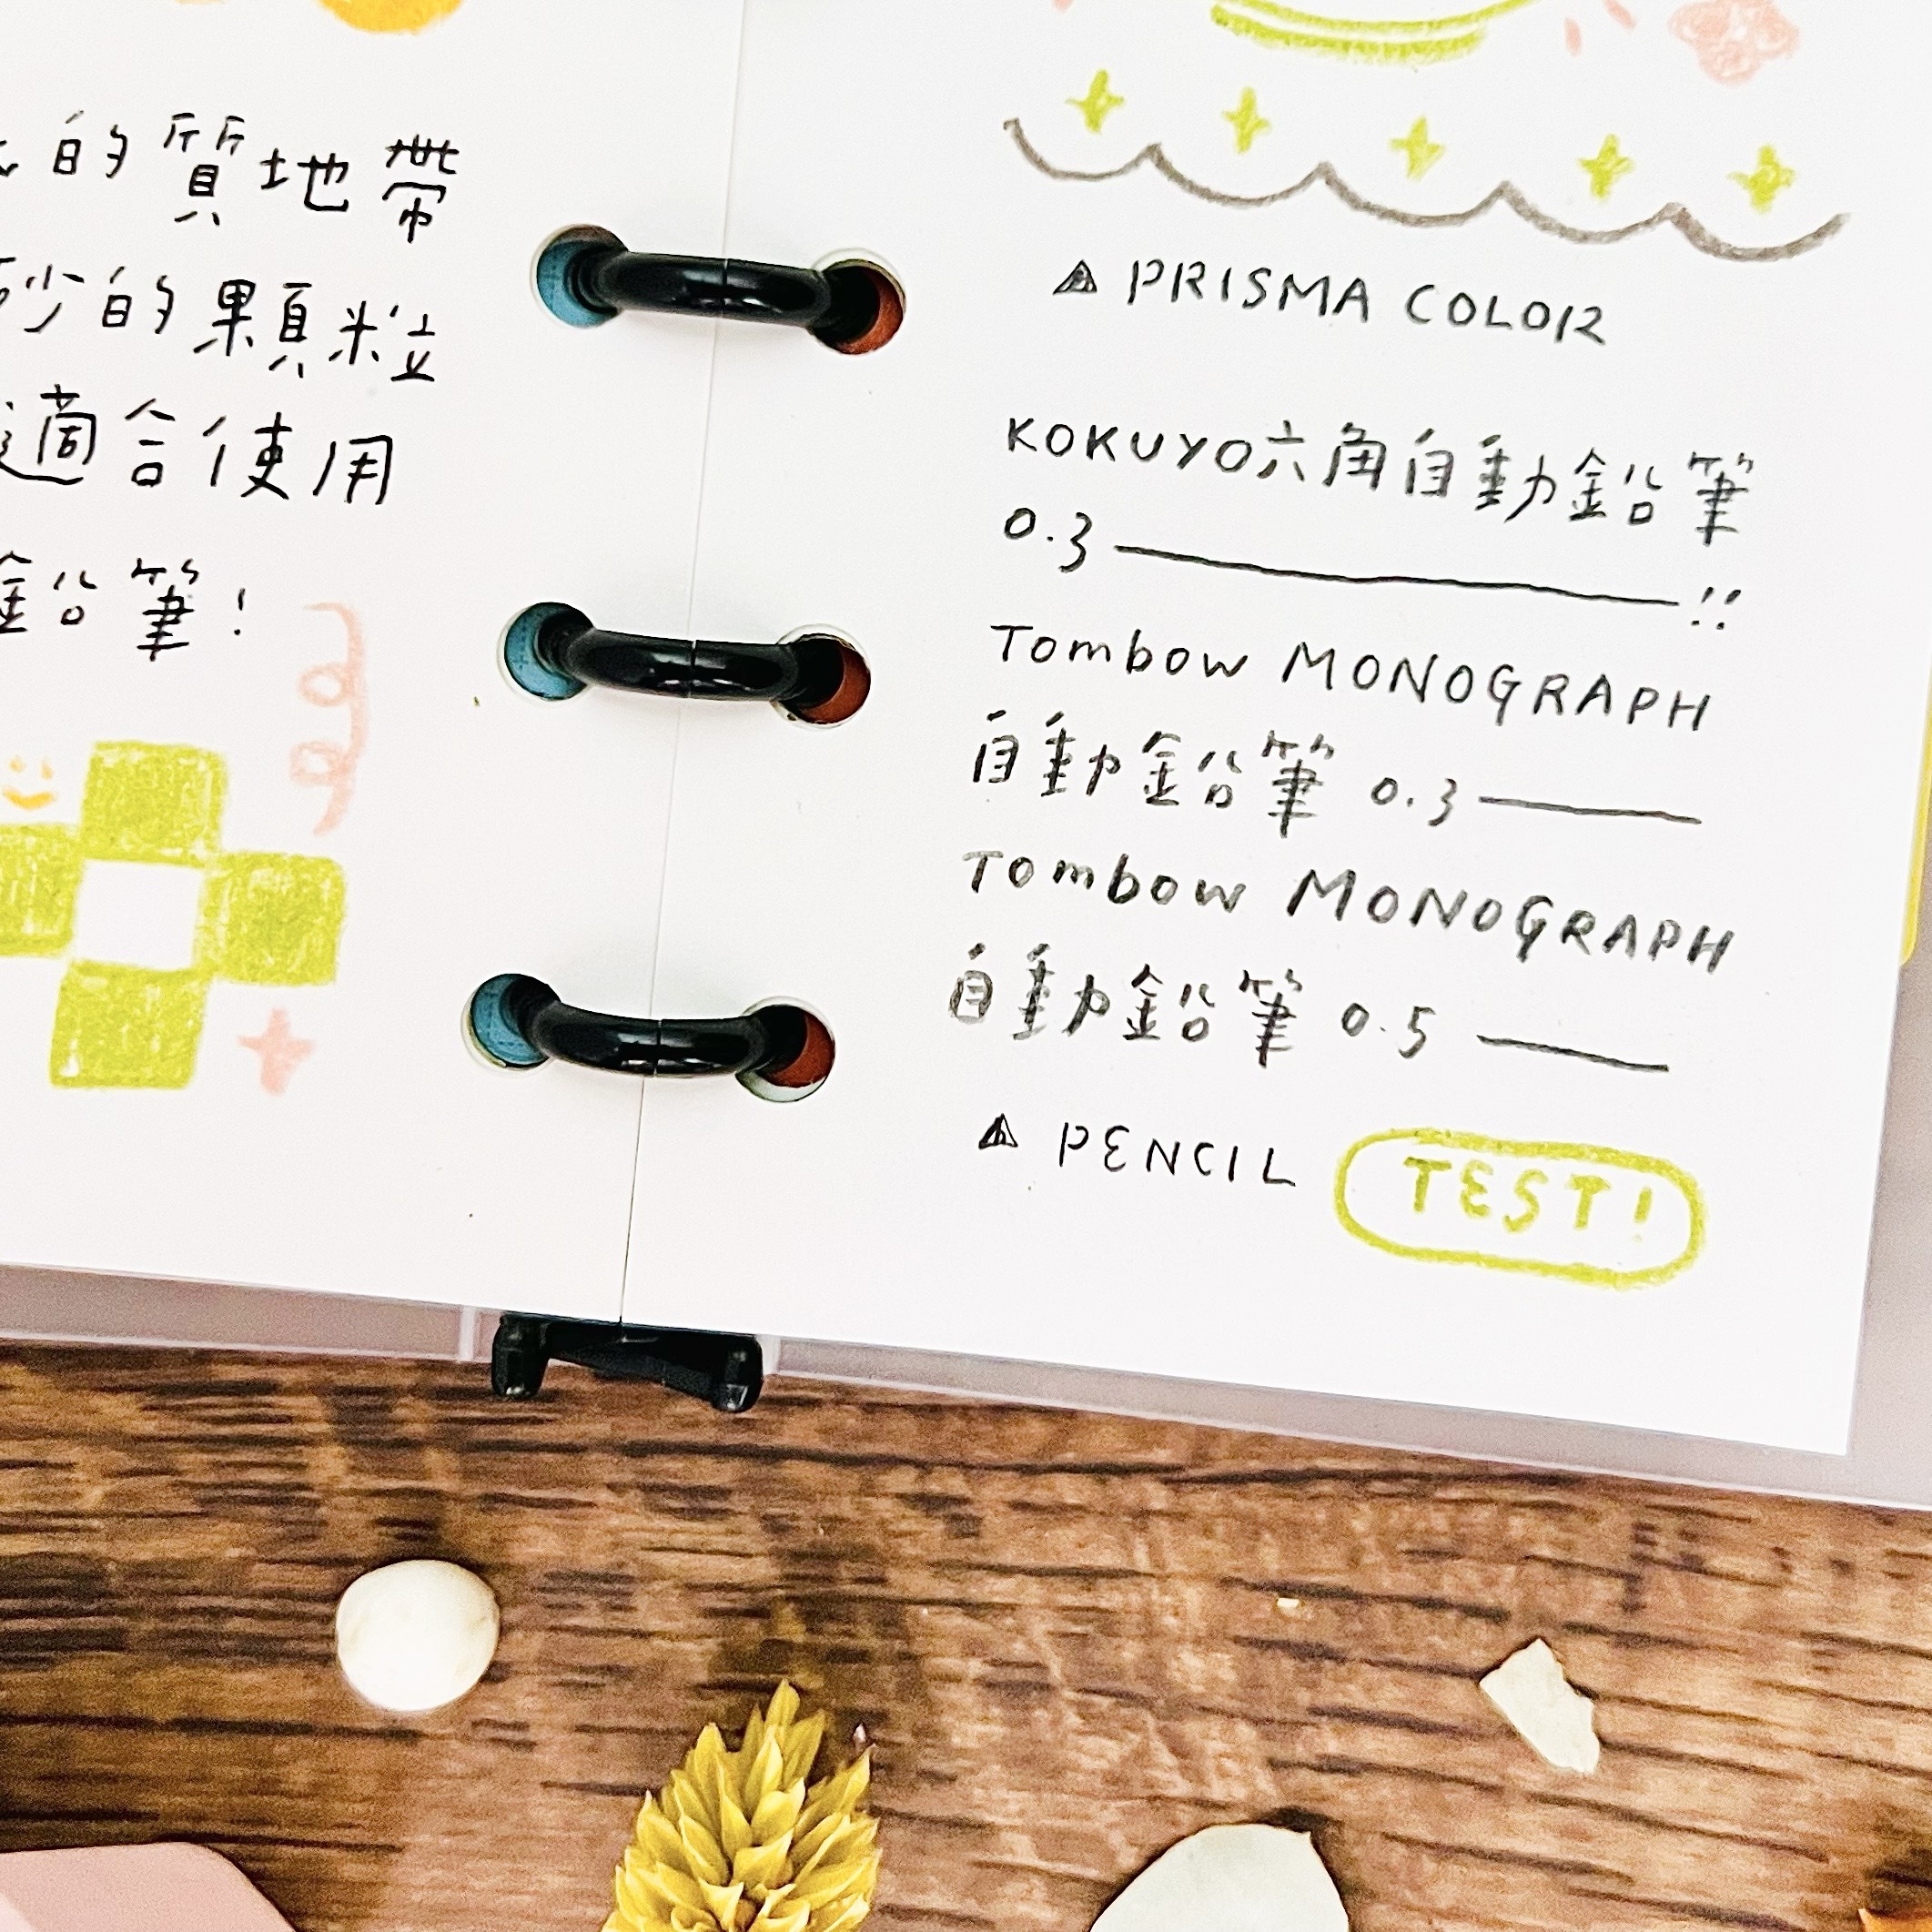 的質地帶
砂的顆粒
適合使用
鉛筆!
▲ PRISMA COLOR
KOKUYO六角自動鉛筆
0.3 ————!!
Tombow MONOGRAPH
自動鉛筆 0.3 ——
Tombow MONOGRAPH
自動鉛筆 0.5 ——
▲ PENCIL TEST!